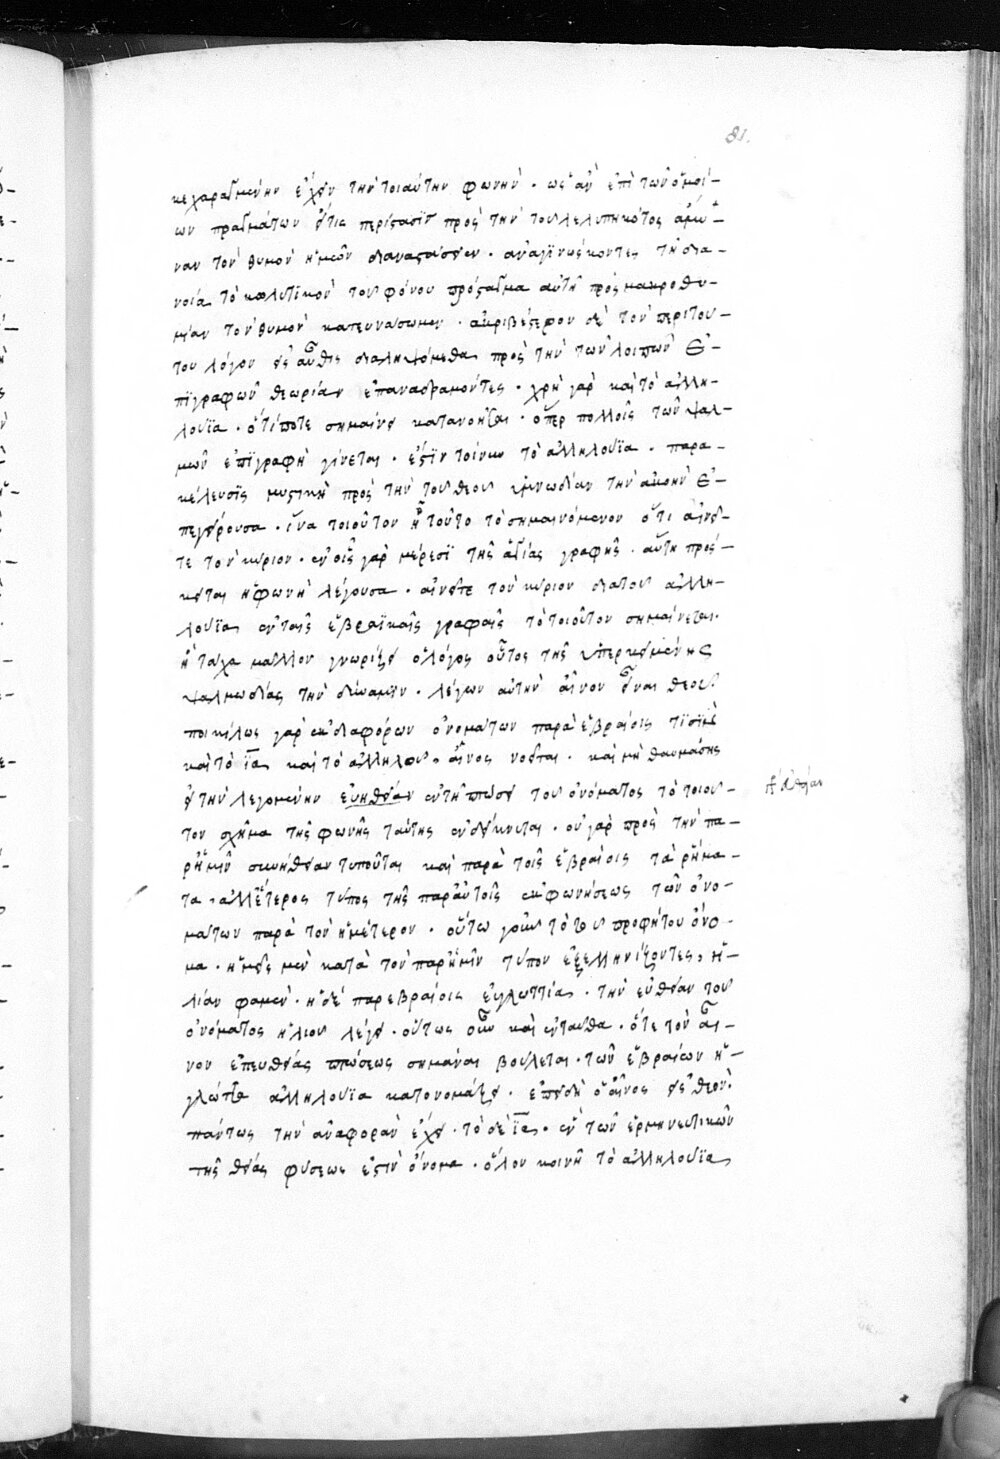 81.
κεχαραγμένην ἔχειν τὴν τοιαύτην φωνήν · ὡς ἂν ἐπὶ τῶν ὁμοί-
ων πραγμάτων εἴτις περίστασις πρὸς τὴν τοῦ λελυπηκότος ἄμυ-
ναν τὸν θυμὸν ἡμῶν διαναστήσειεν · ἀναγινώσκοντες τῇ δια-
νοίᾳ τὸ κωλυτικὸν τοῦ φόνου πρόσταγμα αὐτῇ πρὸς μακροθυ-
μίαν τὸν θυμὸν κατευνάσωμεν · ἀκριβέστερον δὲ τὸν περὶ τού-
του λόγον εἰς αὖθις διαληψόμεθα πρὸς τὴν τῶν λοιπῶν ἐ-
πιγραφῶν θεωρίαν ἐπαναδραμόντες · χρὴ γὰρ καὶ τὸ ἀλλη-
λούϊα · ὅτί ποτε σημαίνει κατανοῆσαι · ὅπερ πολλοῖς τῶν ψαλ-
μῶν ἐπιγραφὴ γίνεται · ἔστιν τοίνυν τὸ ἀλληλούϊα · παρα-
κέλευσις μυστικὴ πρὸς τὴν τοῦ θεοῦ ὑμνωδίαν τὴν ἀκοὴν ἐ-
πεγείρουσα · ἵνα τοιοῦτον ᾖ τοῦτο τὸ σημαινόμενον ὅτι αἰνεῖ-
τε τὸν κύριον · ἐν οἷς γὰρ μέρεσι τῆς ἁγίας γραφῆς · αὕτη πρόσ-
κειται ἡ φωνὴ λέγουσα · αἰνεῖτε τὸν κύριον διὰ τοῦ ἀλλη-
λούϊα ἐν ταῖς ἑβραϊκαῖς γραφαῖς τὸ τοιοῦτον σημαίνεται·
ἢ τάχα μᾶλλον γνωρίζει ὁ λόγος οὗτος τῆς ὑπερκειμένης
ψαλμωδίας τὴν δύναμιν · λέγων αὐτὴν αἶνον εἶναι θεοῦ·
ποικίλως γὰρ ἐκ διαφόρων ὀνομάτων παρὰ ἑβραίοις
καὶ τὸ ἴα καὶ τὸ ἀλληλού · αἶνος νοεῖται · καὶ μὴ θαυμάσης
εἰ τὴν λεγομένην εὐηθείαν ἐν τῇ πτώσει τοῦ ὀνόματος τὸ τοιοῦ-
τον σχῆμα τῆς φωνῆς ταύτης ἐνδείκνυται · οὐ γὰρ πρὸς τὴν πα-
ρ᾽ ἡμῖν συνήθειαν τυποῦται καὶ παρὰ τοῖς ἑβραίοις τὰ ῥήμα-
τα · ἀλλ᾽ ἕτερος τύπος τῆς παρ᾽ αὐτοῖς ἐκφωνήσεως τῶν ὀνο-
μάτων παρὰ τὸν ἡμέτερον · οὕτω γοῦν τὸ τοῦ προφήτου ὄνο-
μα · ἡμεῖς μὲν κατὰ τὸν παρ᾽ ἡμῖν τύπον ἐξελληνίζοντες, ἠ-
λίαν φαμέν · ἡ δὲ παρ᾽ ἑβραίοις εὐγλωττία · τὴν εὐθεῖαν τοῦ
ὀνόματος ἠλιοῦ λέγει · οὕτως οὖν καὶ ἐνταῦθα · ὅτε τὸν αἶ-
νον ἐπ᾽ εὐθείας πτώσεως σημᾶναι βούλεται · τῶν ἑβραίων ἡ
γλῶττα ἀλληλούϊα κατονομάζει · ἐπειδὴ ὁ αἶνος εἰς θεὸν·
πάντως τὴν ἀναφορὰν ἔχει · τὸ δὲ ἴα · ἓν τῶν ἑρμηνευτικῶν
τῆς θείας φύσεως ἐστιν ὄνομα · ὅλον κοινῇ τὸ ἀλληλούϊα